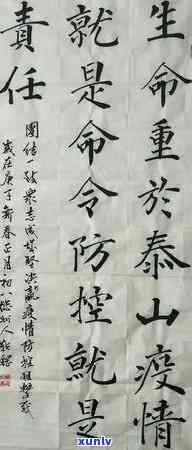 生命重於泰山疫情
就是命令防控就是
責任
團结一致衆志成城堅决赢疫情防控阻擊
歲在庚子新春正月初一
xunlv